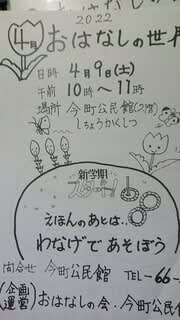 2022
4月 おはなしの世界
日時 4月9日(土)
午前 10時〜11時
場所 今町公民館(2階)
しちょうかくしつ
新学期
えほんのあとは‥
わなげであそぼう
問合せ 今町公民館 TEL-66-
企画
運営 おはなしの会・今町公民